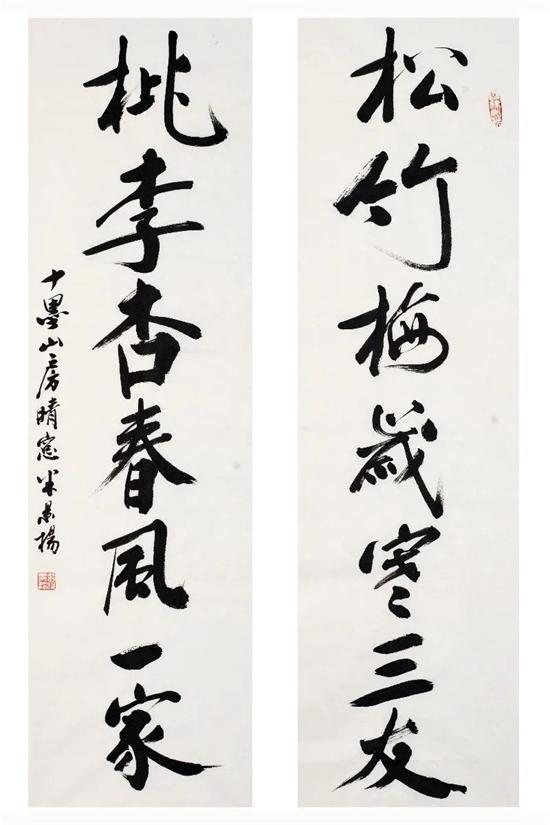 松竹梅歲寒三友
桃李杏春風一家
十墨山房晴窓米景揚